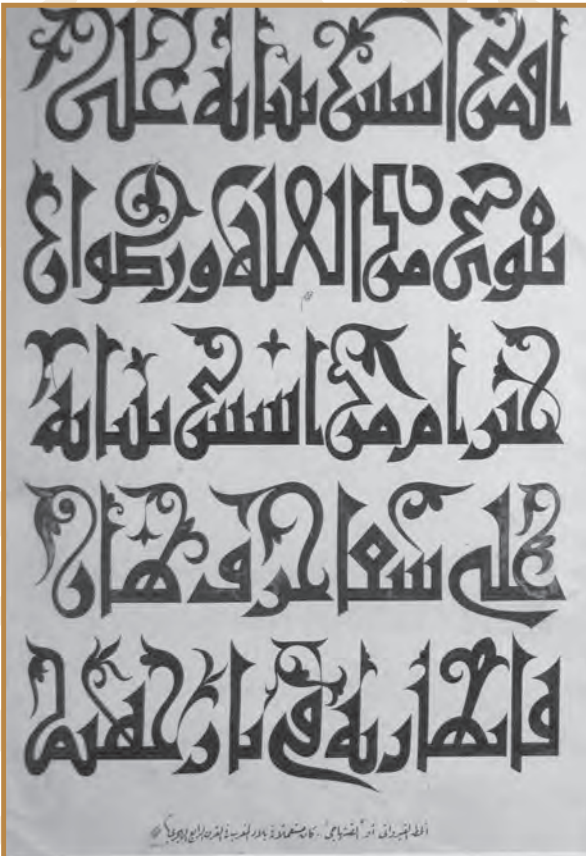 أفمن أسس بنيانه على
تقوى من الله ورضوان
خير أم من أسس بنيانه
على شفا جرف هار
فانهار به في نار جهنم
الخط القيرواني أو "الصنهاجي" . كان مستعملا في بلاد المغرب في القرن الرابع الهجري